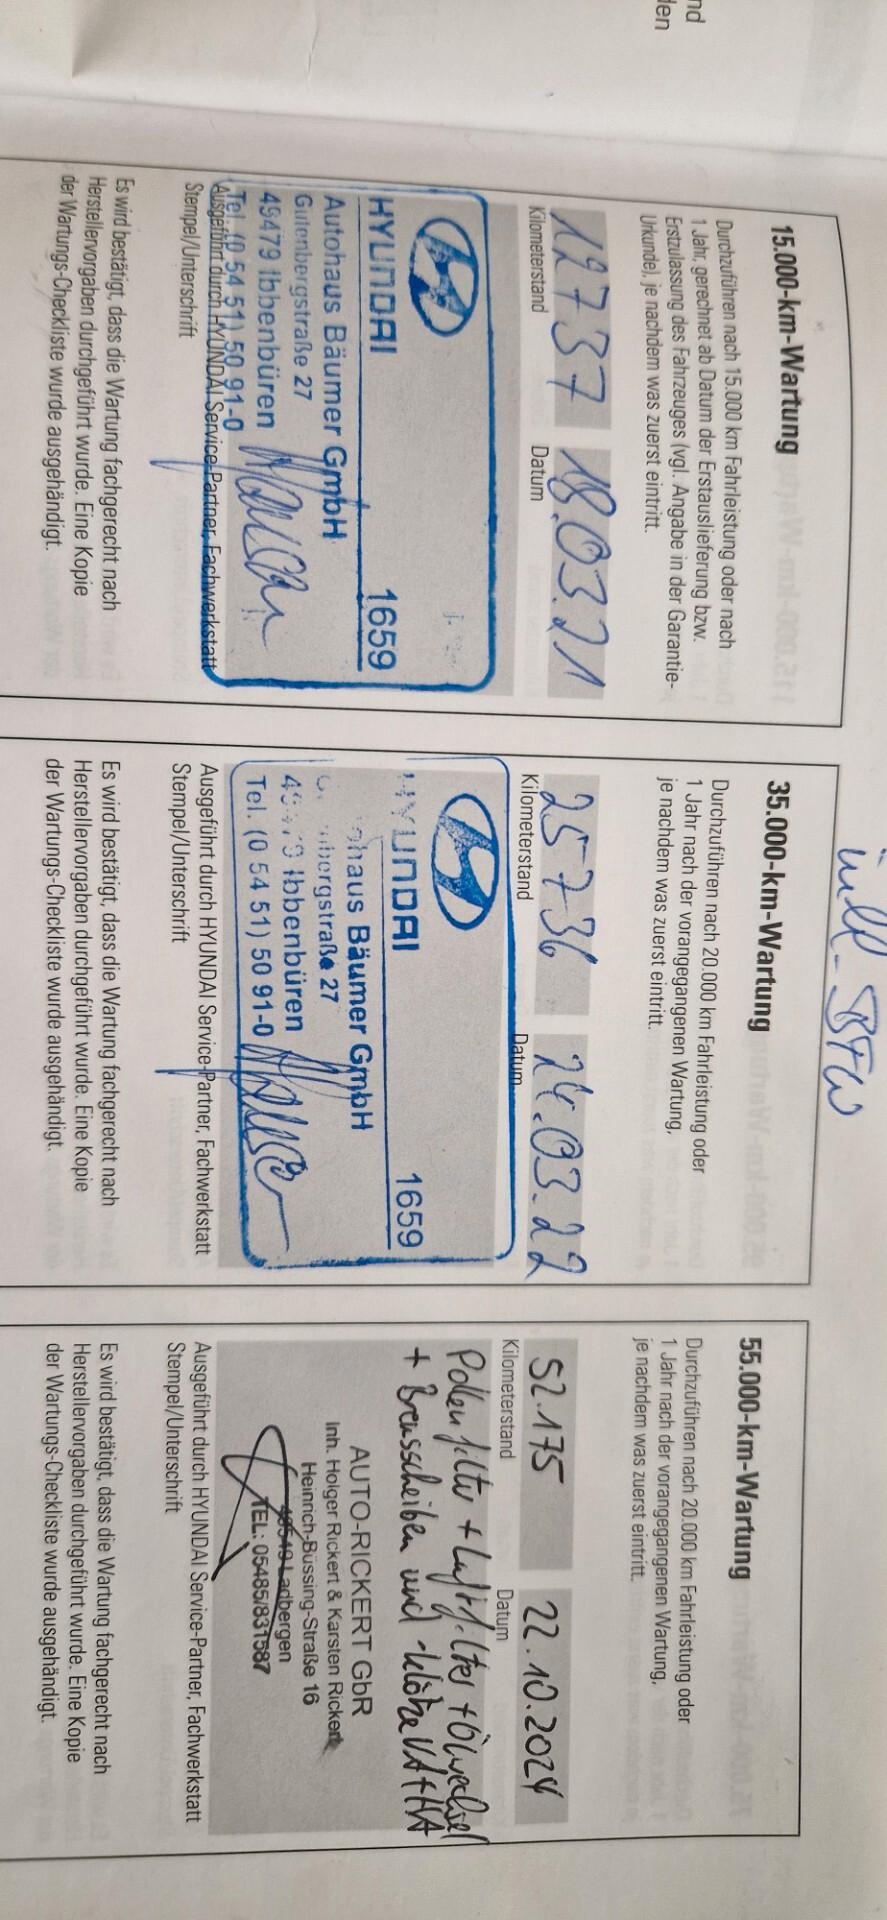 nd
den
15.000-km-Wartung
Durchzuführen nach 15.000 km Fahrleistung oder nach
1 Jahr, gerechnet ab Datum der Erstauslieferung bzw.
Erstzulassung des Fahrzeuges (vgl. Angabe in der Garantie-
Urkunde), je nachdem was zuerst eintritt.
12737 18.03.21
Kilometerstand Datum
HYUNDAI 1659
Autohaus Bäumer GmbH
Gutenbergstraße 27
49479 Ibbenbüren
Tel. (0 54 51) 50 91-0
Ausgeführt durch HYUNDAI Service-Partner, Fachwerkstatt
Stempel/Unterschrift
Es wird bestätigt, dass die Wartung fachgerecht nach
Herstellervorgaben durchgeführt wurde. Eine Kopie
der Wartungs-Checkliste wurde ausgehändigt.
35.000-km-Wartung
Durchzuführen nach 20.000 km Fahrleistung oder
1 Jahr nach der vorangegangenen Wartung,
je nachdem was zuerst eintritt.
25736 24.03.22
Kilometerstand Datum
HYUNDAI 1659
haus Bäumer GmbH
bergstraße 27
Ibbenbüren
Tel. (0 54 51) 50 91-0
Ausgeführt durch HYUNDAI Service-Partner, Fachwerkstatt
Stempel/Unterschrift
Es wird bestätigt, dass die Wartung fachgerecht nach
Herstellervorgaben durchgeführt wurde. Eine Kopie
der Wartungs-Checkliste wurde ausgehändigt.
55.000-km-Wartung
Durchzuführen nach 20.000 km Fahrleistung oder
1 Jahr nach der vorangegangenen Wartung,
je nachdem was zuerst eintritt.
52.175 22.10.2024
Kilometerstand Datum
Pollenfilter + Luftfilter + Ölwechsel
+ Bremsscheiben und -klötze VA+HA
AUTO-RICKERT GbR
Inh. Holger Rickert & Karsten Rickert
Heinrich-Büssing-Straße 16
49549 Ladbergen
TEL: 05485/831587
Ausgeführt durch HYUNDAI Service-Partner, Fachwerkstatt
Stempel/Unterschrift
Es wird bestätigt, dass die Wartung fachgerecht nach
Herstellervorgaben durchgeführt wurde. Eine Kopie
der Wartungs-Checkliste wurde ausgehändigt.